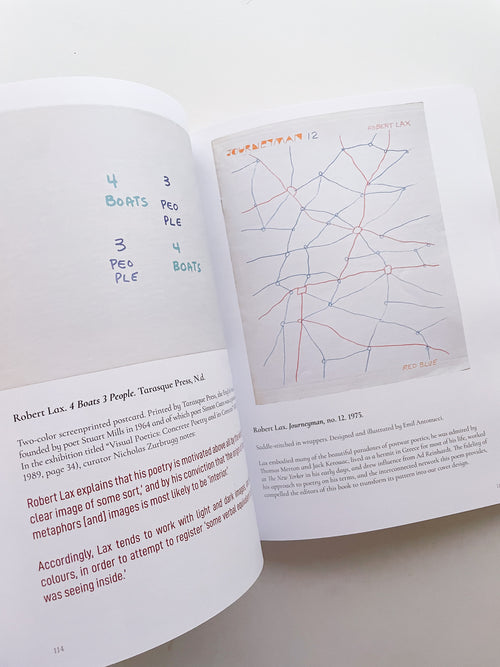 4 3
BOATS PEO
PLE
3 4
PEO BOATS
PLE
Robert Lax. 4 Boats 3 People. Tarasque Press, N.d.
Two-color screenprinted postcard. Printed by Tarasque Press, the
founded by poet Stuart Mills in 1964 and of which poet Simon Cutts was
In the exhibition titled "Visual Poetics: Concrete Poetry and its
1989, page 34), curator Nicholas Zurbrugg notes:
Robert Lax explains that his poetry is motivated above all by the
clear image of some sort,' and by his conviction that 'the
metaphors [and] images is most likely to be 'interior.'
Accordingly, Lax tends to work with light and dark
colours, in order to attempt to register 'some verbal
was seeing inside.'
114
JOURNEYMAN 12
ROBERT LAX
RED BLUE
Robert Lax. Journeyman, no. 12. 1975.
Saddle-stitched in wrappers. Designed and illustrated by Emil Antonucci.
Lax embodied many of the beautiful paradoxes of postwar poetics; he was admired by
Thomas Merton and Jack Kerouac, lived as a hermit in Greece for most of his life, worked
at The New Yorker in his early days, and drew influence from Ad Reinhardt. The fidelity of
his approach to poetry on his terms, and the interconnected network this poem provides,
compelled the editors of this book to transform its pattern into our cover design.